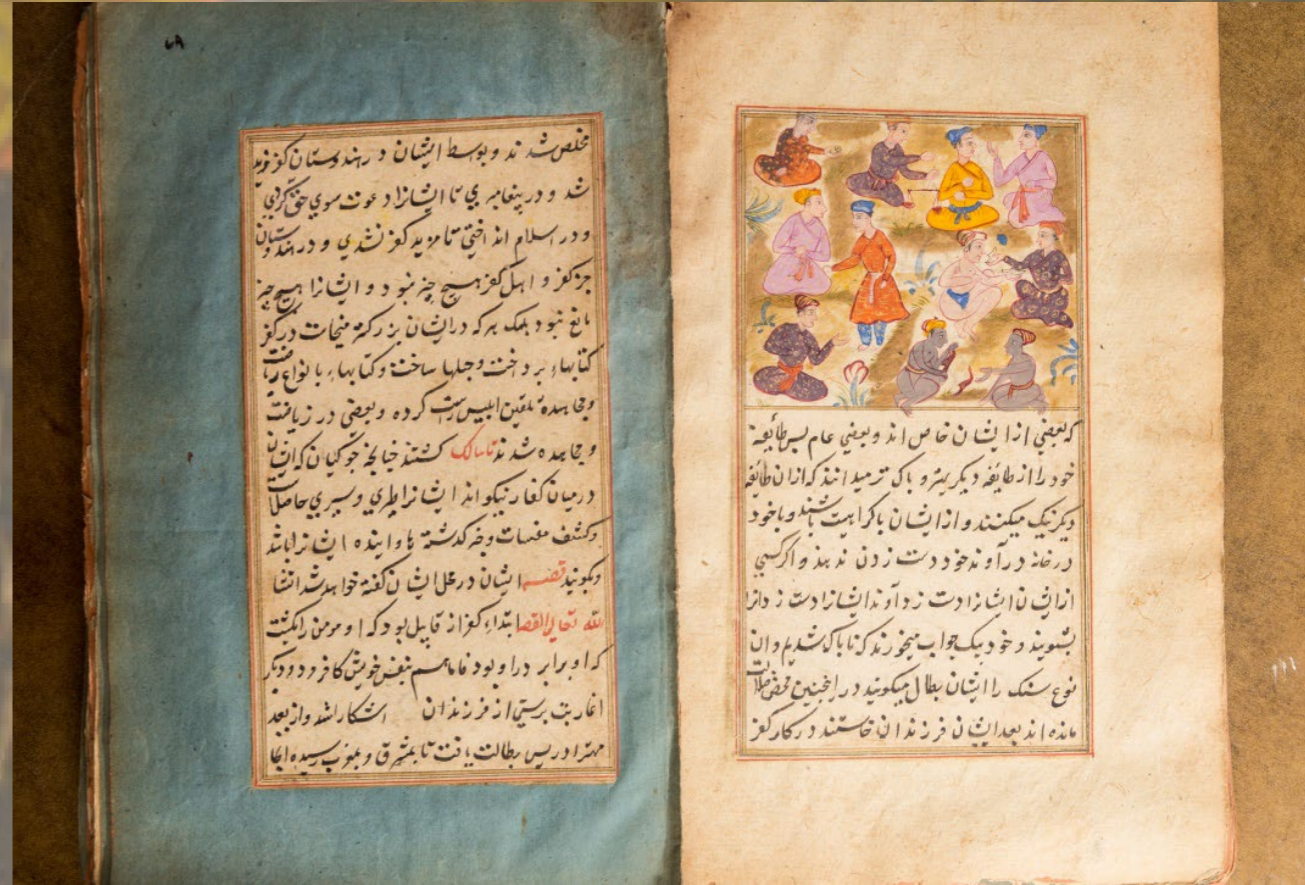 که بعضي از ایشان خاص اند و بعضي عام پس طائفه
خود را از طایفه دیکر بهتر و پاک تر میدانند که ازان طائفه
دیکر نیک میکنند و از ایشان با کراهیت باشند و با خود
در خانه در آوند خود دست زدن ندهند و اکر کسي
از ایشان ایشانرا دست زد آوند ایشانرا دست زد انرا
بشویند و خود یک جواب میخورند که ناپاک شدیم و ان
نوع سنک را ایشان بطال میکویند در اینچنین محض ضلالت
مانده اند بعد ایشان فرزندان خاستند در کار کفر
۶۸
مخلص شدند و بوسط ایشان در هندوستان کفر مزید
شد و در پیغامبري تا ایشانرا دعوت سوي حق کردي
و در اسلام انداختي تا مزید کفر نشدي و در هندوستان
جز کفر و اهل کفر هیچ چیز نبود و ایشانرا هیچ چیز
مانع نبود بلک هر که در ایشان بزرکتر در کفر
کتابهاء پرداخت و حیلها ساخت و کتابهاء با نواع ریاضت
و مجاهده تلقین ابلیس راست کرده و بعضي در ریاضت
و مجاهده شدند تا سالک کشتند چنانچه جوکیان که ایشان
در میان کفار نیکو اند ایشانرا طیري و سیري حاصل
و کشف مغیبات و چه کذشته ها و اینده ایشانرا باشد
و بکویند قصه ایشان در محل ایشان کفته خواهد شد انشا
الله تعالي القصه ابتداء کفر از قابیل بود که او مومن را بکشت
که او برادر او بود فاما هم بنفس خویش کافر و دیکر
اغاز بت پرستي از فرزندان اشکارا شد و از بعد
مهتر ادریس رسالت یافت تا بمشرق و بمغرب رسیده انجا